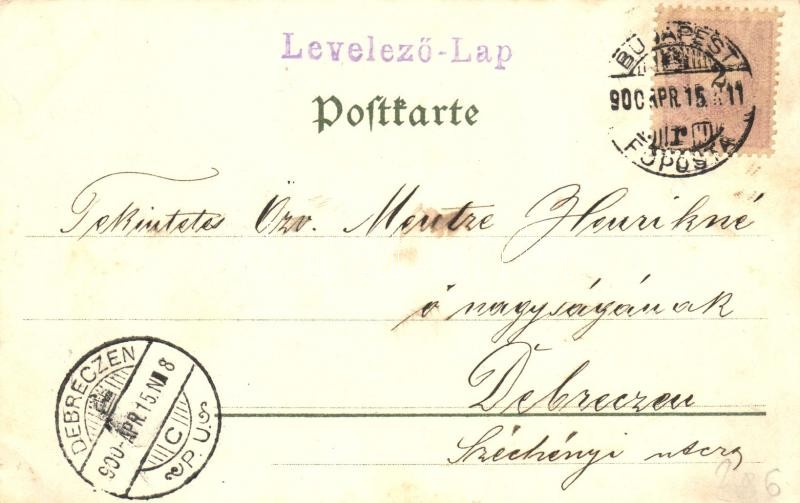 Levelező-Lap
Postkarte
BUDAPEST
900 APR. 15
FŐPOSTA
Tekintetes Özv. Mentze Henrikné
ő nagyságának
Debreczen
Széchényi utcza
DEBRECZEN
900-APR. 15. N 8
C
P. U.
286